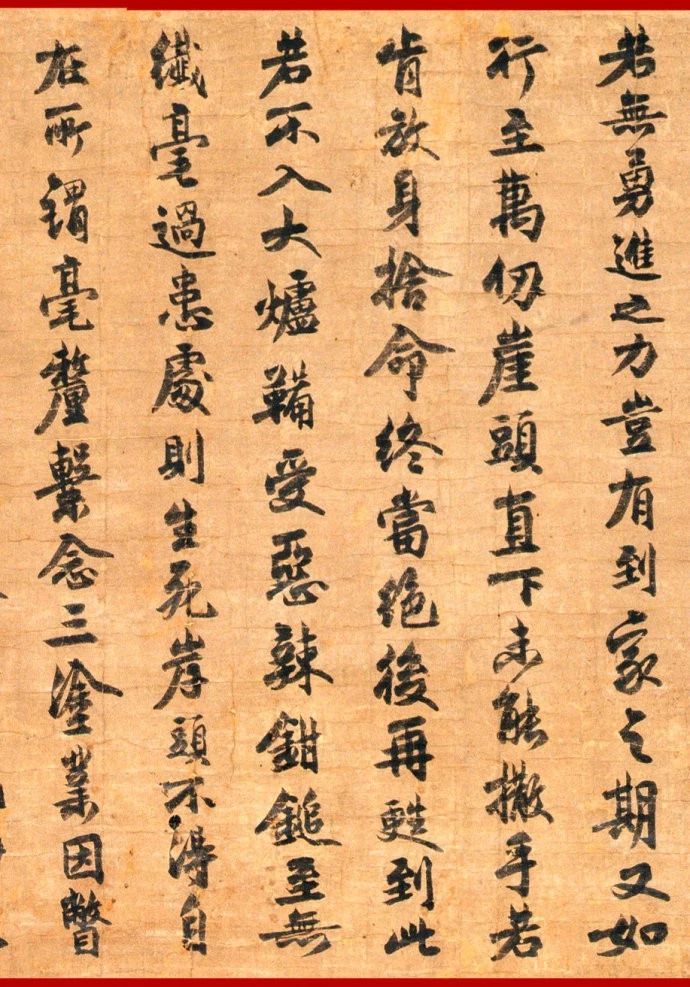 若無勇進之力豈有到家之期又如
行至萬仞崖頭直下未能撒手若
肯放身捨命終當絶後再甦到此
若不入大爐鞴受惡辣鉗鎚至無
纖毫過患處則生死岸頭不得自
在所謂毫釐繫念三塗業因瞥